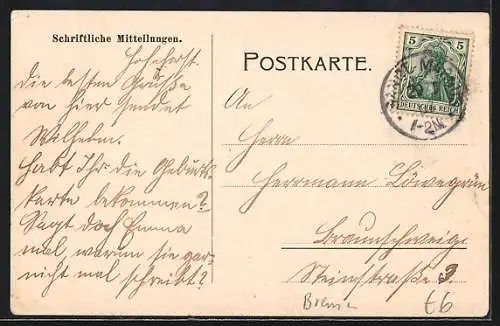 Schriftliche Mitteilungen.
POSTKARTE.
Die besten Grüße
von hier sendet
Wilhelm.
Habt Ihr die Geburts-
karte bekommen?
Sagt doch Emma
mal, warum sie gar
nicht mal schreibt?
An
Herrn
Herrmann Löwegrün
Braunschweig
Steinstraße 3.
5 5
DEUTSCHES REICH
1-2N
E6